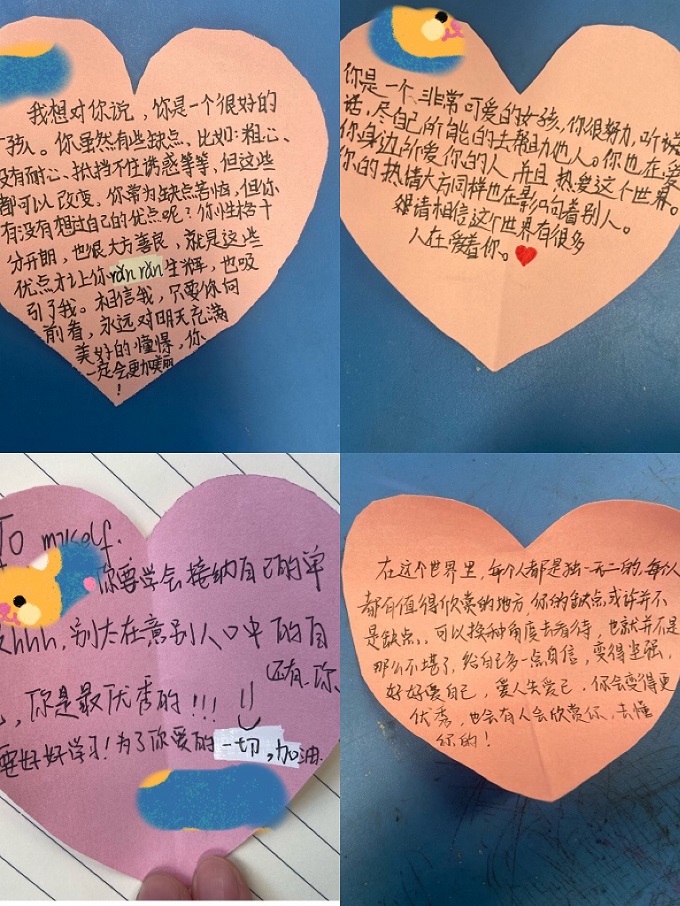 我想对你说，你是一个很好的
孩人。你虽然有些缺点、比如：粗心、
没有耐心、抵挡不住诱惑等等，但这些
都可以改变。你常为缺点苦恼，但你
有没有想过自己的优点呢？你性格十
分开朗，也很大方善良，就是这些
优点才让你rǎn rǎn生辉，也吸
引了我。相信我，只要你向
前看，永远对明天充满
美好的憧憬，你
一定会更加美丽
！
你是一个、非常可爱的女孩、你很努力，听话
话，尽自己所能的去帮助他人。你也在爱
你身边所爱你的人 并且 热爱这个世界。
你的热情大方同样也在影响着别人。
请相信这个世界有很多
人在爱着你。
To myself.
你要学会接纳自己的单
hhh，别太在意别人口中的自
还有、你、
，你是最优秀的！！！
要好好学习！为了你爱的一切，加油.
在这个世界里，每个人都是独一无二的，每个人
都有值得欣赏的地方，你的缺点或许并不
是缺点，可以换种角度去看待，也就并不是
那么不堪了，给自己多一点自信，变得坚强，
好好爱自己，爱人先爱己，你会变得更
优秀，也会有人会欣赏你，去懂
你的！